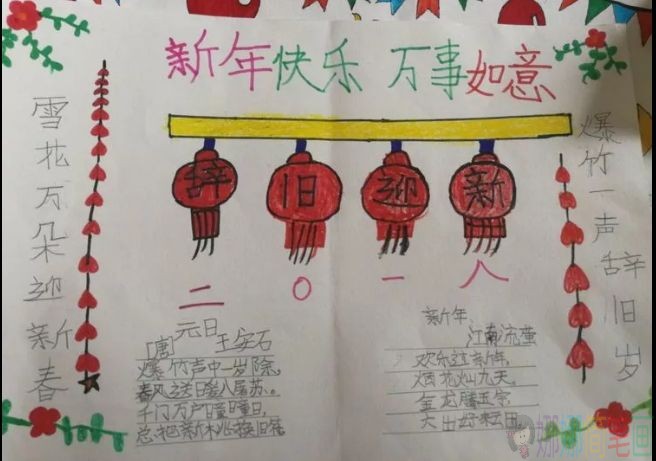 新年快乐 万事如意
雪花万朵迎新春
爆竹一声辞旧岁
辞旧迎新
二〇一八
元日
[唐] 王安石
爆竹声中一岁除,
春风送日暖八屠苏。
千门万户曈曈日,
总把新桃换旧
新年,
江南流萤
欢乐过新年,
烟花灿九天。
金龙腾玉宇
大地好耘田